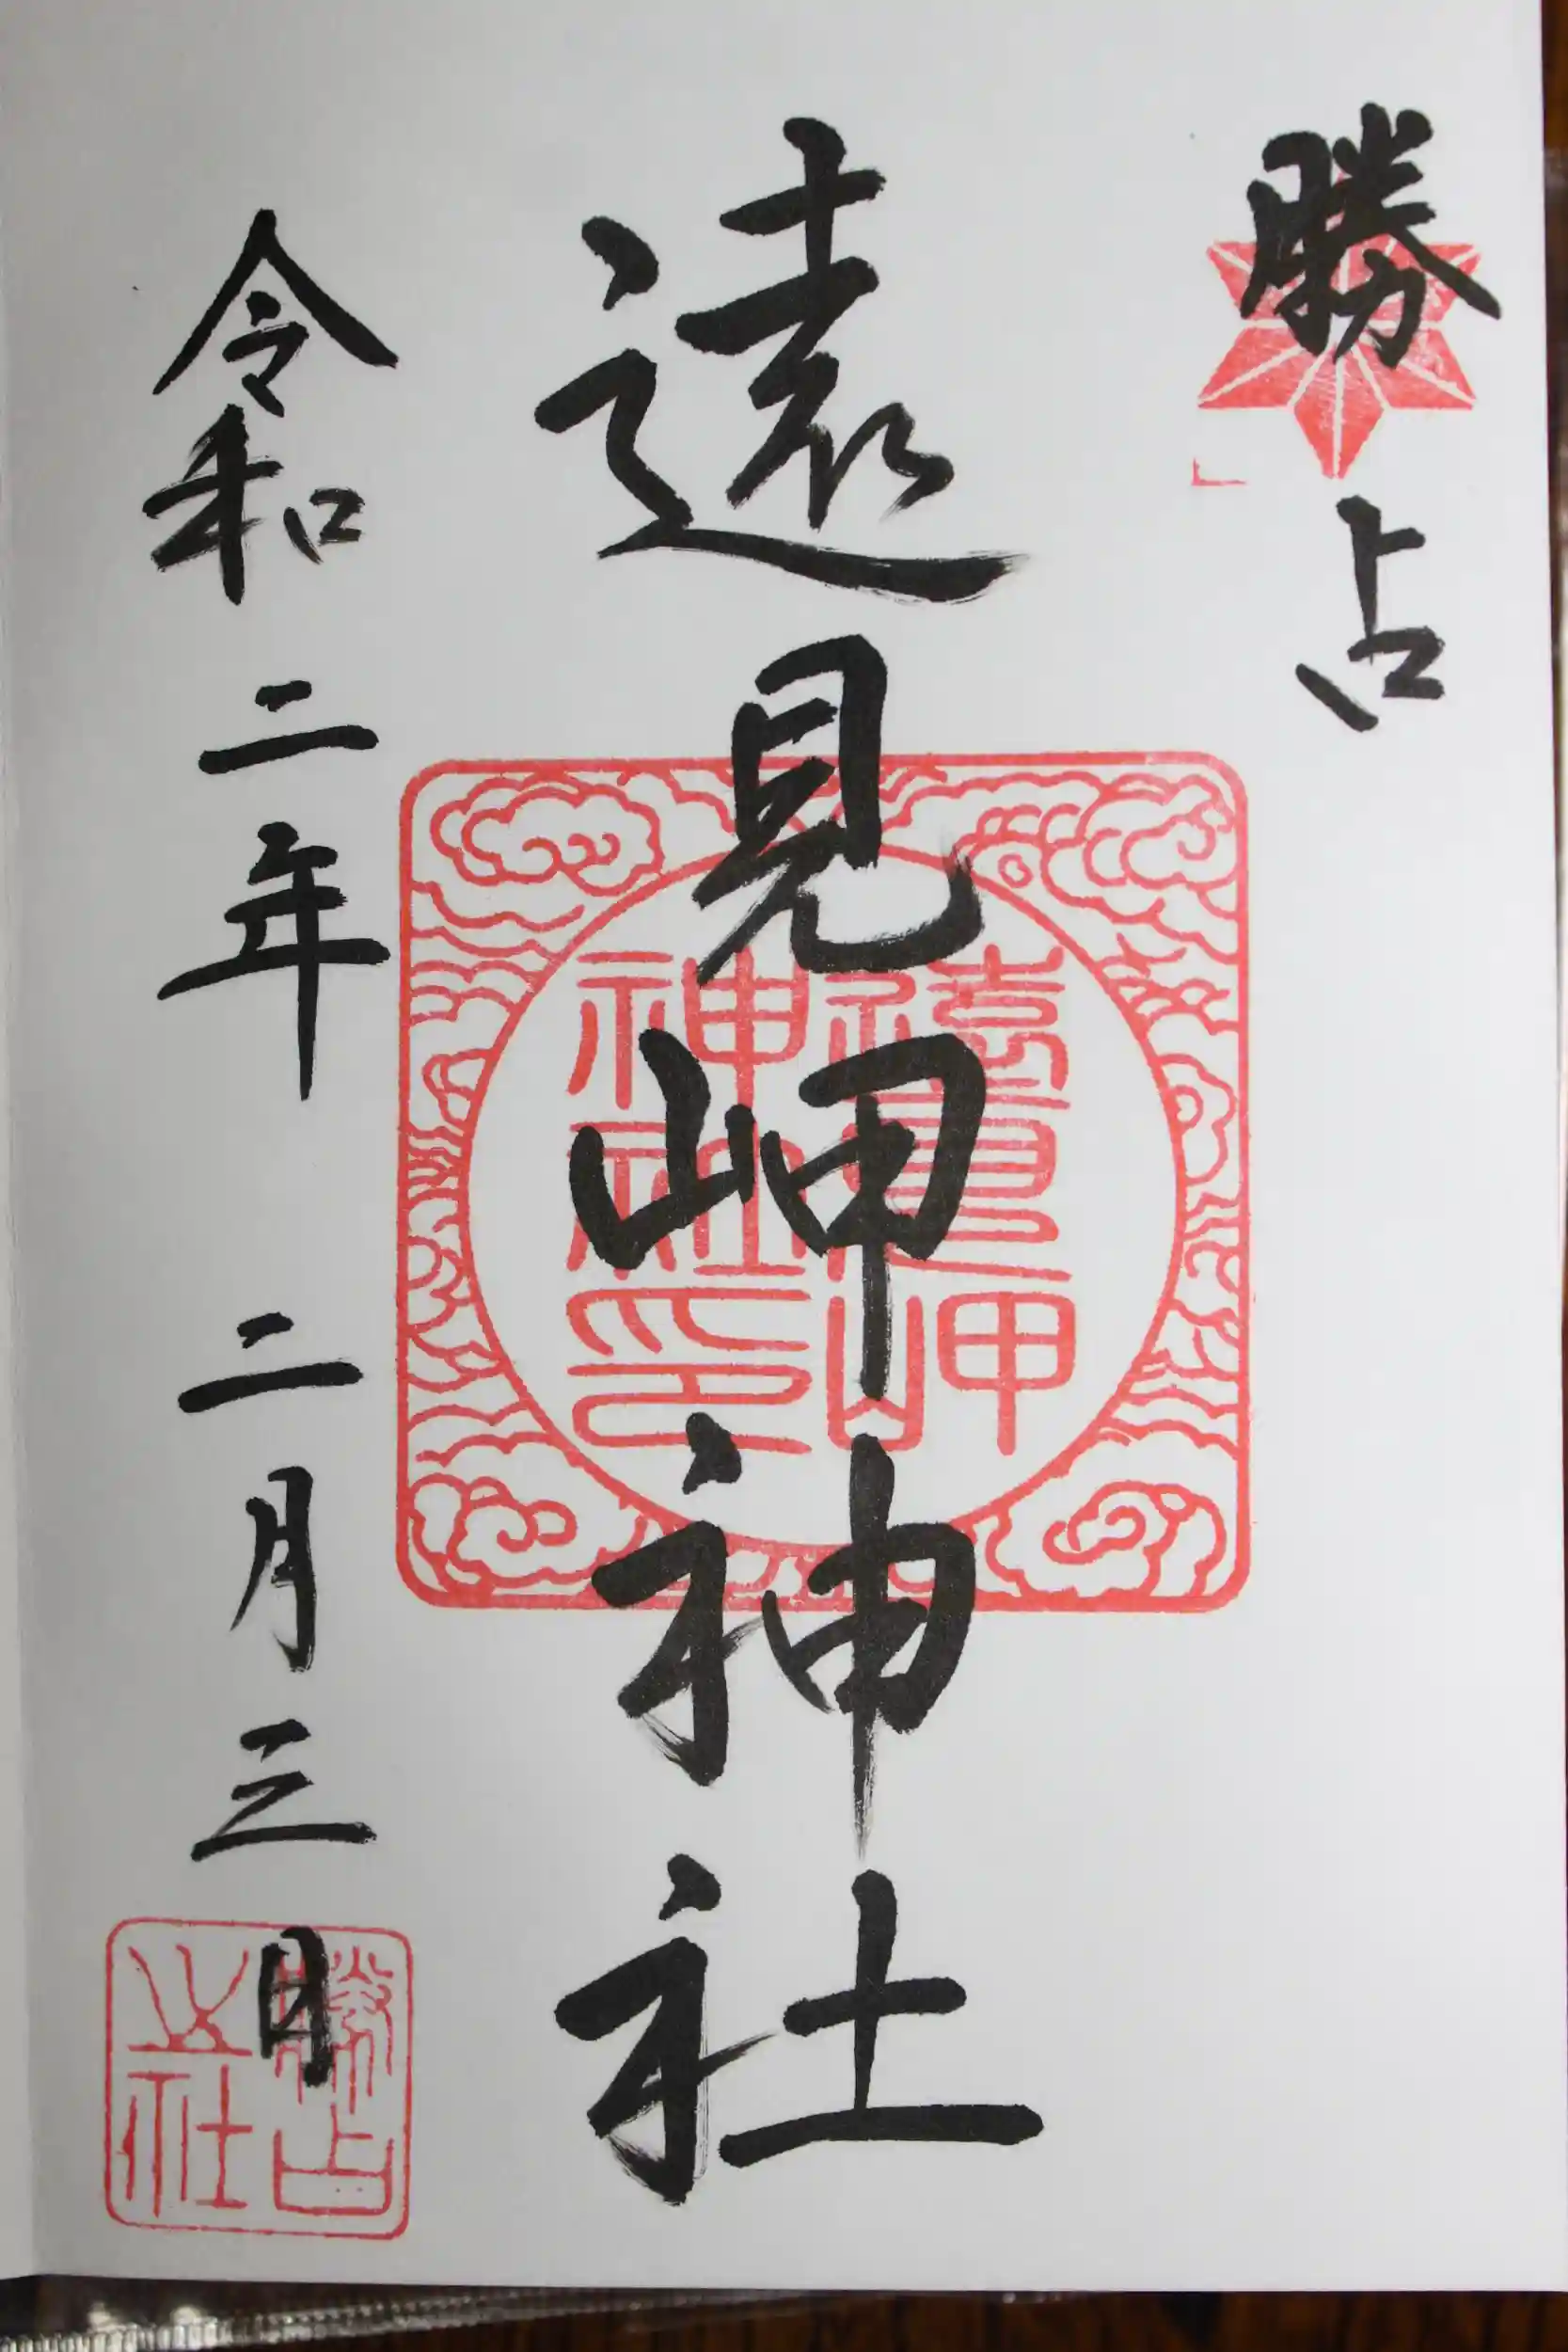 勝占
遠見岬神社
遠見岬
神社印
令和二年 二月三日
勝占
之社